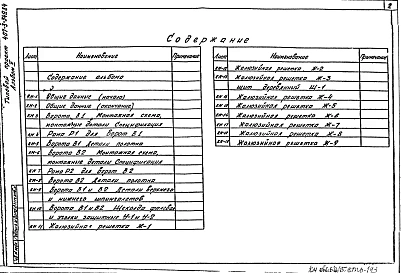 2
Содержание
Лист Наименование Примечание
Содержание альбома
Общие данные (начало)
Общие данные (окончание)
Ворота В1 Монтажная схема,
монтажные детали Спецификация
Рама Р1 для Ворот В1
Ворота В1 Детали полотна
Ворота В2 Монтажная схема,
монтажные детали Спецификация
Рама Р2 для Ворот В2
Ворота В2 Детали полотна
Ворота В1 и В2 Детали верхнего
и нижнего шпингалетов
Ворота В1 и В2 Щеколда
и уголки защитные У-1 и У-2
Жалюзийная решетка Ж-1
Лист Наименование Примечание
Жалюзийная решетка Ж-2
Жалюзийная решетка Ж-3
Щит деревянный Щ-1
Жалюзийная решетка Ж-4
Жалюзийная решетка Ж-5
Жалюзийная решетка Ж-6
Жалюзийная решетка Ж-7
Жалюзийная решетка Ж-8
Жалюзийная решетка Ж-9
Типовой проект
Альбом